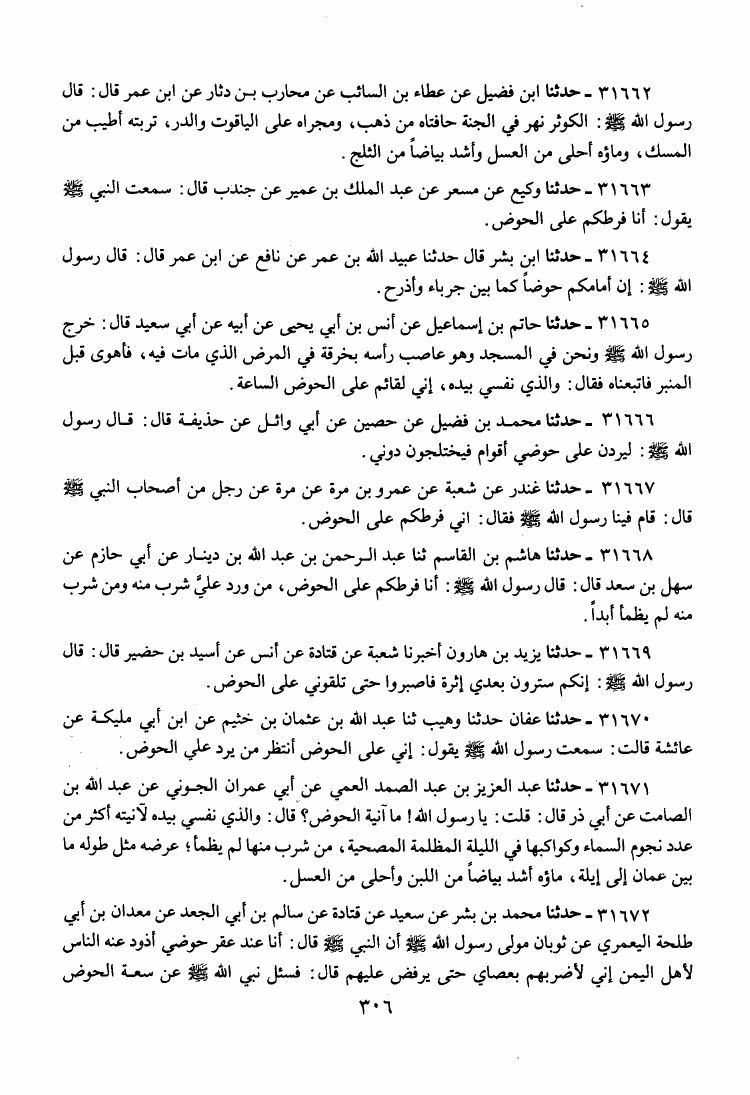 ٣١٦٦٢ ـ حدثنا ابن فضيل عن عطاء بن السائب عن محارب بـن دثار عن ابن عمر قال : قال
رسول الله ﷺ : الكوثر نهر في الجنة حافتاه من ذهب، ومجراه على الياقوت والدر، تربته أطيب من
المسك، وماؤه أحلى من العسل وأشد بياضاً من الثلج .
٣١٦٦٣ ـ حدثنا وكيع عن مسعر عن عبد الملك بن عمير عن جندب قال : سمعت النبي ﷺ
يقول : أنا فرطكم على الحوض .
٣١٦٦٤ ـ حدثنا ابن بشر قال حدثنا عبيد الله بن عمر عن نافع عن ابن عمر قال : قال رسول
الله ﷺ : إن أمامكم حوضاً كما بين جرباء وأذرح .
٣١٦٦٥ ـ حدثنا حاتم بن إسماعيل عن أنس بن أبي يحيى عن أبيه عن أبي سعيد قال : خرج
رسول الله ﷺ ونحن في المسجد وهو عاصب رأسه بخرقة في المرض الذي مات فيه، فأهوى قبل
المنبر فاتبعناه فقال : والذي نفسي بيده، إني لقائم على الحوض الساعة .
٣١٦٦٦ ـ حدثنا محمـد بن فضيل عن حصين عن أبي وائـل عن حذيفـة قال : قـال رسول
الله ﷺ : ليردن على حوضي أقوام فيختلجون دوني .
٣١٦٦٧ ـ حدثنا غندر عن شعبة عن عمرو بن مرة عن مرة عن رجل من أصحاب النبي ﷺ
قال : قام فينا رسول الله ﷺ فقال : اني فرطكم على الحوض .
٣١٦٦٨ ـ حدثنا هاشم بن القاسم ثنا عبد الـرحمن بن عبد الله بن دينـار عن أبي حازم عن
سهل بن سعد قال : قال رسول الله ﷺ : أنا فرطكم على الحوض، من ورد عليَّ شرب منه ومن شرب
منه لم يظمأ أبداً .
٣١٦٦٩ ـ حدثنا يزيد بن هارون أخبرنا شعبة عن قتادة عن أنس عن أسيد بن حضير قال : قال
رسول الله ﷺ : إنكم سترون بعدي إثرة فاصبروا حتى تلقوني على الحوض .
٣١٦٧٠ ـ حدثنا عفان حدثنا وهيب ثنا عبد الله بن عثمان بن خثيم عن ابن أبي مليكـة عن
عائشة قالت : سمعت رسول الله ﷺ يقول : إني على الحوض أنتظر من يرد علي الحوض .
٣١٦٧١ ـ حدثنا عبد العزيز بن عبد الصمد العمي عن أبي عمران الجـوني عن عبد الله بن
الصامت عن أبي ذر قال : قلت : يا رسول الله ! ما آنية الحوض؟ قال : والذي نفسي بيده لآنيته أكثر من
عدد نجوم السماء وكواكبها في الليلة المظلمة المصحية، من شرب منها لم يظمأ؛ عرضه مثل طوله ما
بين عمان إلى إيلة، ماؤه أشد بياضاً من اللبن وأحلى من العسل .
٣١٦٧٢ ـ حدثنا محمد بن بشر عن سعيد عن قتادة عن سالم بن أبي الجعد عن معدان بن أبي
طلحة اليعمري عن ثوبان مولى رسول الله ﷺ أن النبي ﷺ قال : أنا عند عقر حوضي أذود عنه الناس
لأهل اليمن إني لأضربهم بعصاي حتى يرفض عليهم قال : فسئل نبي الله ﷺ عن سعـة الحوض
٣٠٦